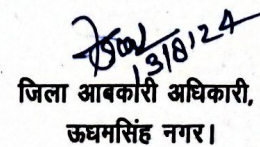 13/8/24
जिला आबकारी अधिकारी,
ऊधमसिंह नगर।